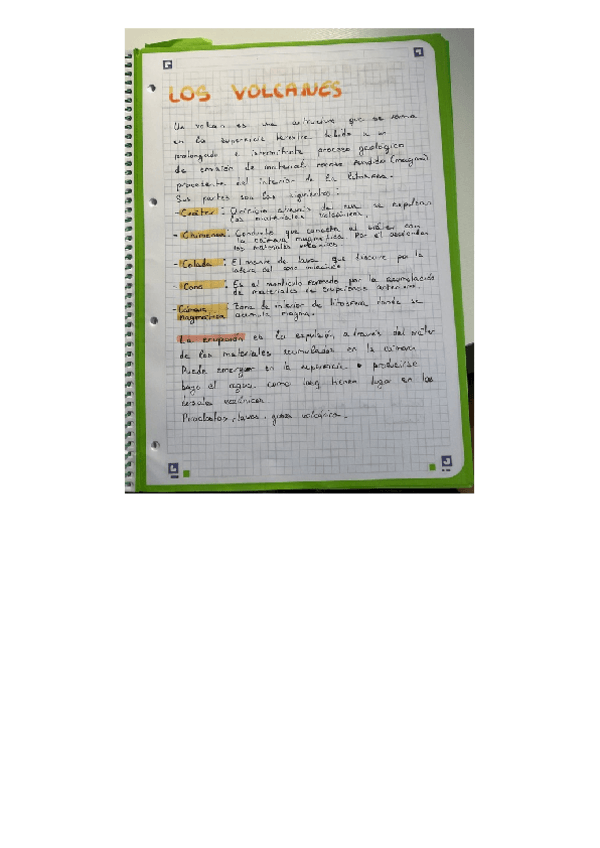 LOS VOLCANES
Un volcan es una que se forma
en la superficie terrestre debido a un
prolongado e intermitente proceso geologico
de emisión de material rocoso fundido (magma)
procedente del interior de la litosfera.
Sus partes son las siguientes :
- Cráter : Orificio a través del cual se expulsan
los materiales volcánicos.
- Chimenea : Conducto que conecta el cráter con
la cámara magmática. Por él ascienden
los materiales volcánicos
- Colada : El manto de lava que discurre por la
ladera del cono
- Cono : Es el montículo formado por la acumulación
de materiales de erupciones anteriores.
- Cámara magmática : Zona de interior de litosfera donde se
acumula magma.
La erupción es la expulsión a través del cráter
de los materiales acumulados en la cámara
Puede emerger en la superficie o producirse
bajo el agua, como las tienen lugar en las
dorsales oceánicas
Piroclastos, lavas, gases volcánico.